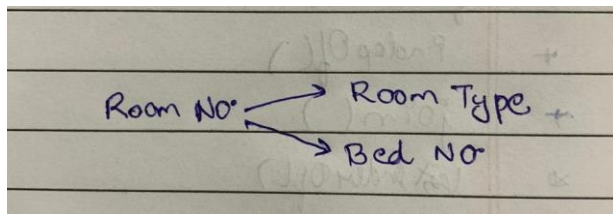 Room NO.
Room Type
Bed NO